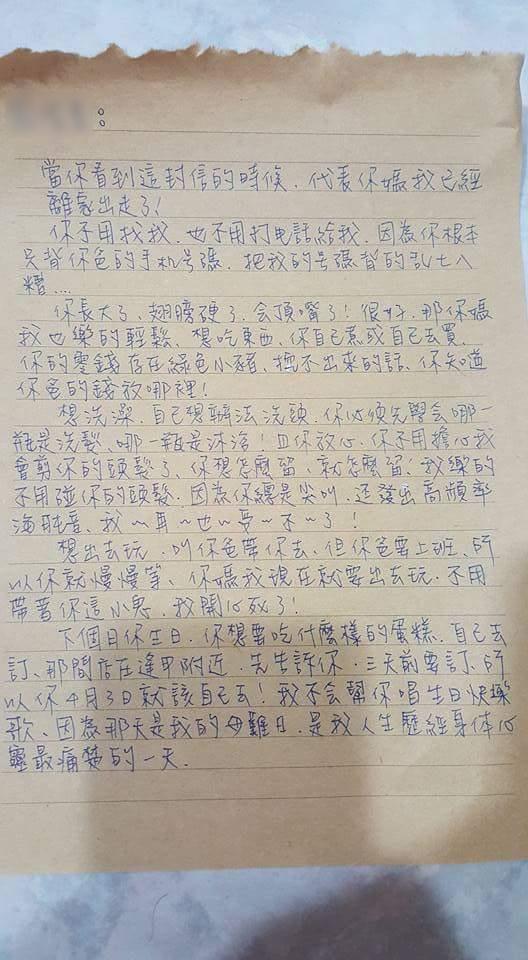 ：
當你看到這封信的時候．代表你媽我已經
離家出走了!
你不用找我．也不用打电話給我．因為你根本
只背你爸的手机号碼．把我的号碼背的乱七八
糟....
你長大了、翅膀硬了．会頂嘴了! 很好．那你媽
我也樂的輕鬆、想吃東西、你自己煮或自己去買.
你的零錢存在綠色小豬、挖不出來的話、你知道
你爸的錢放哪裡!
想洗澡．自己想辦法洗頭．你必須先學会哪一
瓶是洗髮、哪一瓶是沐浴! 且你放心．你不用擔心我
會剪你的頭髮了、你想怎麼留、就怎麼留．我樂的
不用碰你的頭髮．因為你總是尖叫．还發出高頻率
海豚音、我~耳~也~受~不~了!
想出去玩．叫你爸帶你去、但你爸要上班、所
以你就慢慢等、你媽我現在就要出去玩．不用
帶著你這小鬼．我開心死了!
下個日你生日．你想要吃什麼樣的蛋糕．自己去
訂、那間店在逢甲附近．先告訴你．三天前要訂、所
以你4月3日就該自己去! 我不会幫你唱生日快樂
歌、因為那天是我的母難日．是我人生歷經身体心
靈最痛楚的一天.